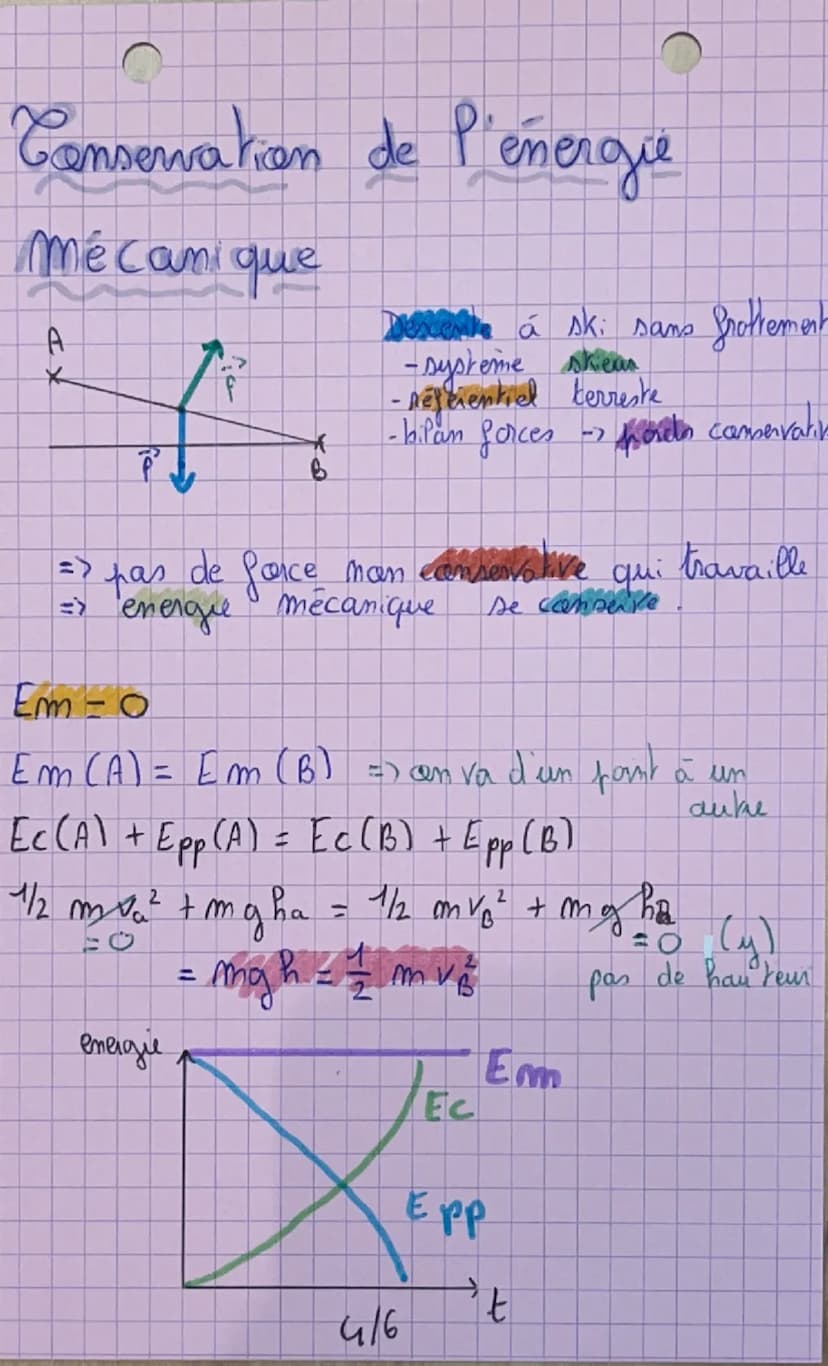 Conservation de l'énergie
mécanique
A
Descente á ski sans frottement
- système skieur
F
- référentiel terreste
- bilan forces -> poids conservativ
P
B
=> pas de force non conservative qui travaille
=> energie mécanique se conserve.
Em = 0
Em (A) = Em (B) => on va d'un point à un
autre
Ec(A) + Epp(A) = Ec(B) + Epp(B)
1/2 mva² + mgha = 1/2 mvB² + mg hB
= 0
= 0 (y)
= mgh = 1/2 m vB²
pas de hauteur
energie
Em
Ec
Epp
t
4/6